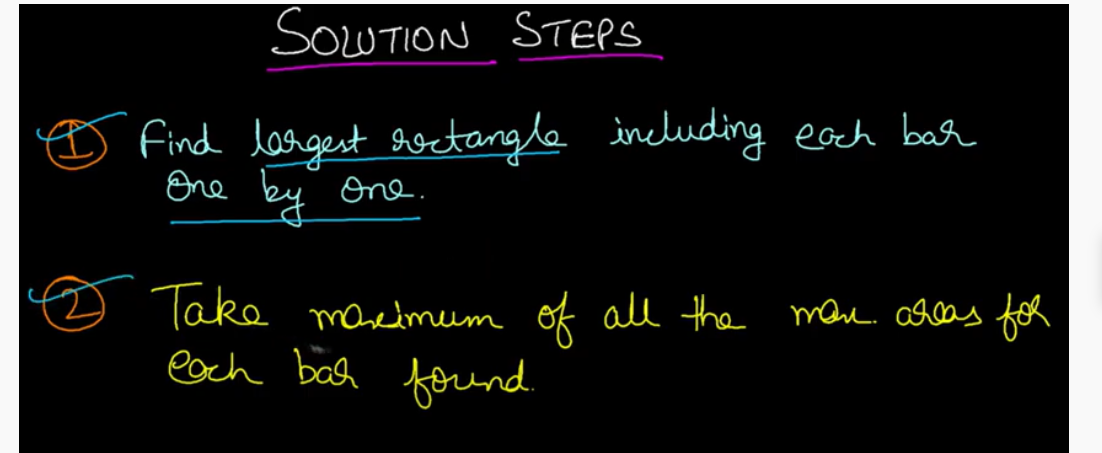 SOLUTION STEPS
① Find largest rectangle including each bar
One by One.
② Take maximum of all the max. areas for
each bar found.